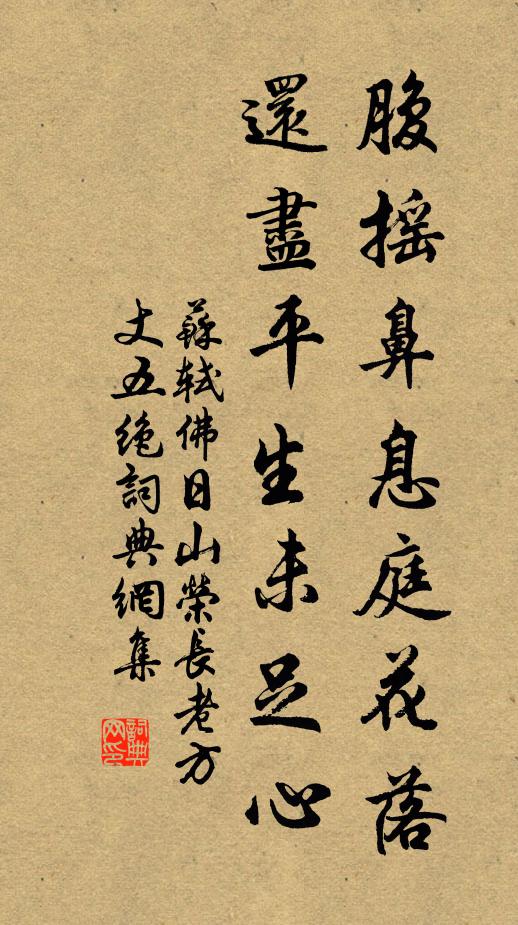 腹搖鼻息庭花落
還盡平生未足心
蘇軾佛日山榮長老方
丈五絶詞典網集
詞典网印